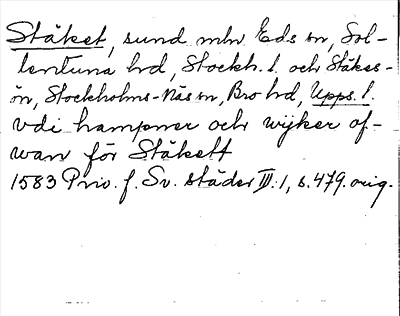 Stäket, sund mlv Eds sn, Sol-
lentuna hd, Stockh. l. och Stäkes-
ön, Stockholms-Näs sn, Bro hd, Upps. l.
vdi hampner och wijker of-
wan för Stäkett
1583 Priv. f. Sv. städer III:1, s. 479. orig.